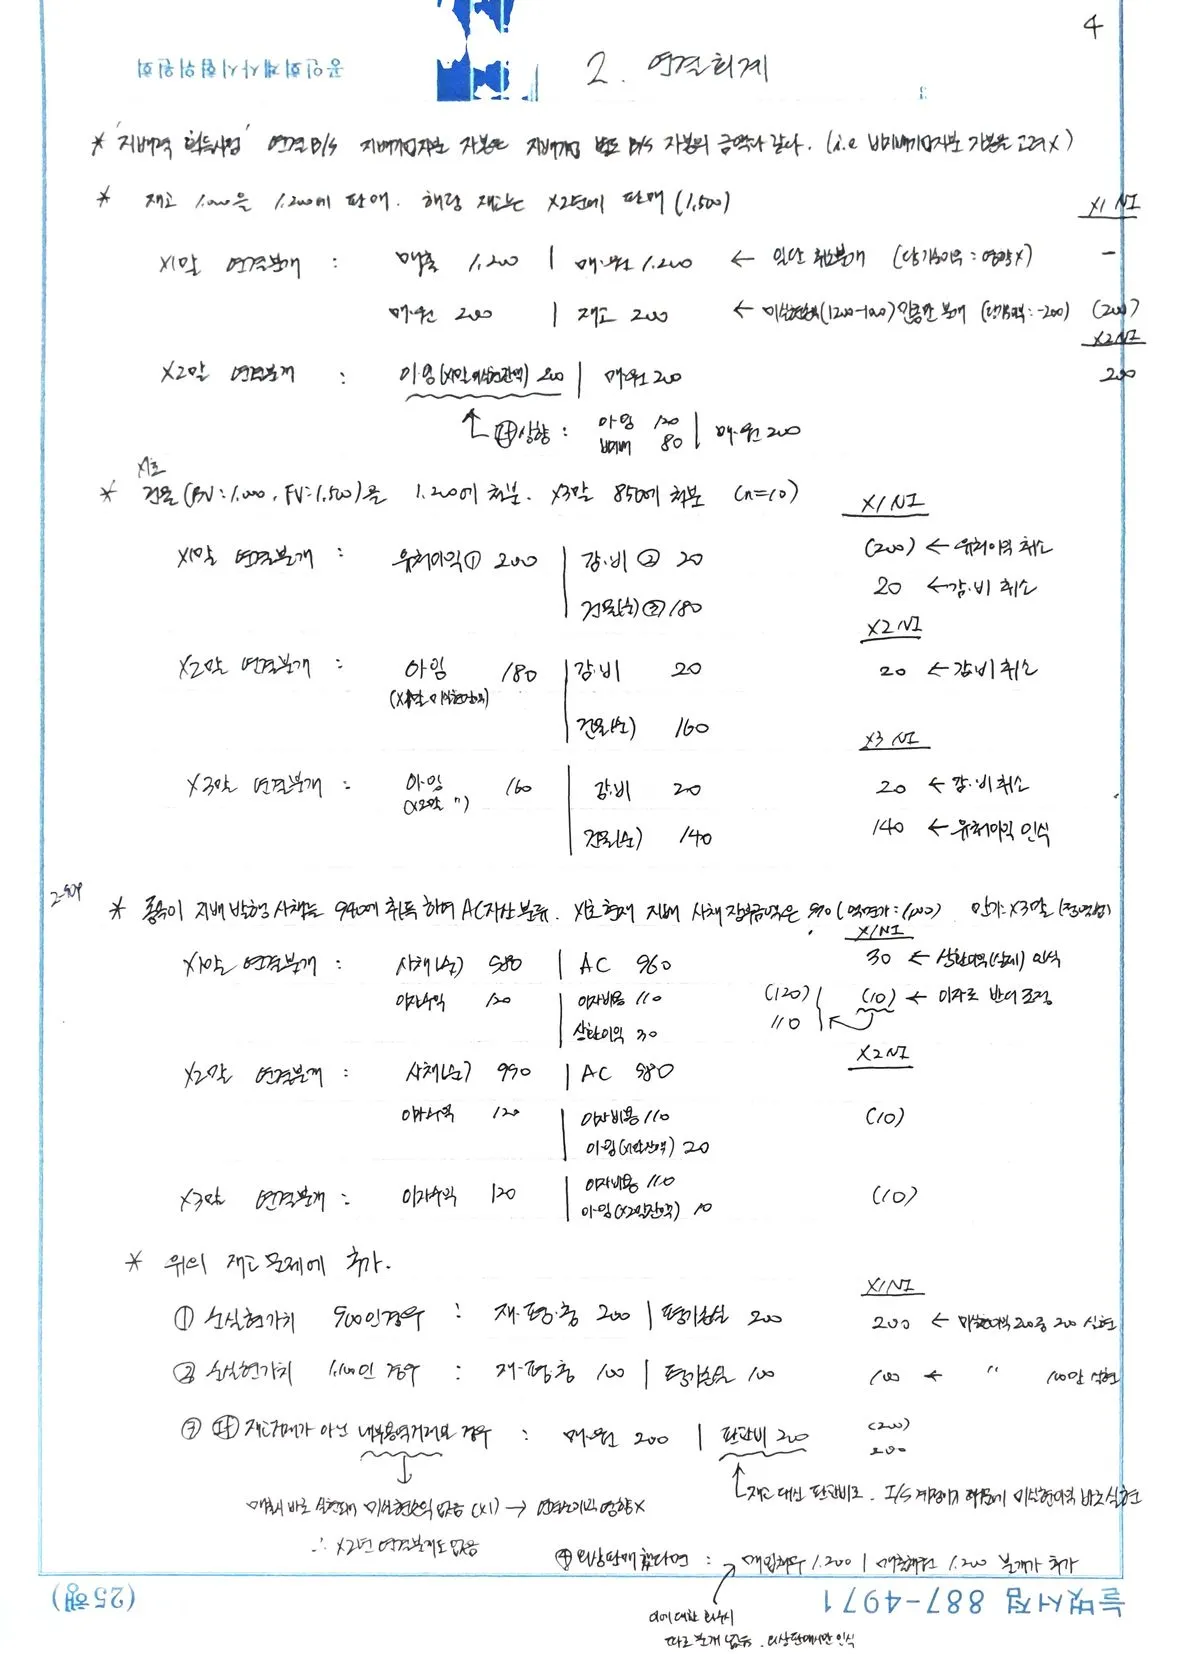 4
공인회계사시험위원회
2. 연결회계
* '지배력 획득시점' 연결B/S 지배기업지분 자본은 지배기업 별도 B/S 자본의 금액과 같다. (i.e 비지배기업지분 자본은 고려X)
* 재고 1,000을 1,200에 판매. 해당 재고는 X2년에 판매 (1,500)
X1 NI
X1말 연결분개 : 매출 1,200 | 매·원 1,200 ← 일단 취소분개 (당기손익 : 영향X) -
매·원 200 | 재고 200 ← 미실현손익(1200-1000)인 만큼 분개 (당기손익 : -200) (200)
X2 NI
X2말 연결분개 : 이·잉(X1말 미실현잔액) 200 | 매·원 200 200
상향 : 이·잉 120 | 매·원 200
비지배 80
X1초
* 건물(BV:1,000, FV:1,500)을 1,200에 처분. X3말 850에 처분 (n=10)
X1 NI
X1말 연결분개 : 유처이익① 200 | 감·비② 20 (200) ← 유처이익 취소
건물(순)③ 180 20 ← 감·비 취소
X2 NI
X2말 연결분개 : 이·잉 180 | 감·비 20 20 ← 감·비 취소
(X1말 미실현잔액)
건물(순) 160
X3 NI
X3말 연결분개 : 이·잉 160 | 감·비 20 20 ← 감·비 취소
(X2말 ")
건물(순) 140 140 ← 유처이익 인식
* 종속이 지배 발행 사채를 940에 취득하여 AC자산 분류. X1초 현재 지배 사채 장부금액은 970 (액면가:1,000) 만기:X3말 (정액법)
X1 NI
X1말 연결분개 : 사채(순) 980 | AC 960 30 ← 상환이익(실제) 인식
이자수익 120 | 이자비용 110 (120) (10) ← 이자로 반대 조정
상환이익 30 110
X2 NI
X2말 연결분개 : 사채(순) 990 | AC 980
이자수익 120 | 이자비용 110 (10)
이·잉(X1말잔액) 20
X3말 연결분개 : 이자수익 120 | 이자비용 110 (10)
이·잉(X2말잔액) 10
* 위의 재고 문제에 추가.
X1 NI
① 순실현가치 900인 경우 : 재·평·충 200 | 평가손실 200 200 ← 미실현이익 200중 200 실현
② 순실현가치 1,100인 경우 : 재·평·충 100 | 평가손실 100 100 ← " 100만 실현
③ 재고거래가 아닌 내부용역거래인 경우 : 매·원 200 | 판관비 200 (200)
200
재고 대신 판관비로. I/S 계정이기 때문에 미실현이익 바로 실현
바로 실현돼 미실현손익 없음 (X1) → 연결손익 영향X
∴ X2년 연결분개도 없음
④ 외상판매 했다면 : 매입채무 1,200 | 매출채권 1,200 분개가 추가
따로 분개 없음. 외상판매시만 인식
늘벗서점 887-4971
(25행)